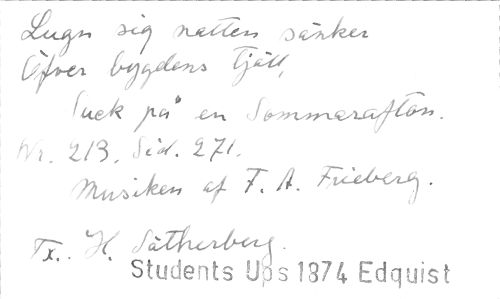 Lugn sig natten sänker
Öfver bygdens tjäll,
Suck på en Sommarafton.
Nr. 213. Sid. 271.
Musiken af F. A. Frieberg.
Tx. H. Sätherberg.
Students Ups 1874 Edquist